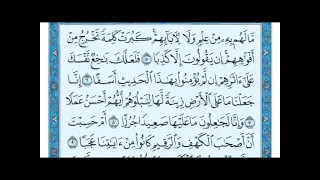 مَّا لَهُم بِهِۦ مِنْ عِلْمٍ وَلَا لِآبَآئِهِمْ كَبُرَتْ كَلِمَةً تَخْرُجُ مِنْ
أَفْوَٰهِهِمْ إِن يَقُولُونَ إِلَّا كَذِبًا ۝٥ فَلَعَلَّكَ بَٰخِعٌ نَّفْسَكَ
عَلَىٰٓ ءَاثَٰرِهِمْ إِن لَّمْ يُؤْمِنُوا۟ بِهَٰذَا ٱلْحَدِيثِ أَسَفًا ۝٦ إِنَّا
جَعَلْنَا مَا عَلَى ٱلْأَرْضِ زِينَةً لَّهَا لِنَبْلُوَهُمْ أَيُّهُمْ أَحْسَنُ عَمَلًا
۝٧ وَإِنَّا لَجَٰعِلُونَ مَا عَلَيْهَا صَعِيدًا جُرُزًا ۝٨ أَمْ حَسِبْتَ
أَنَّ أَصْحَٰبَ ٱلْكَهْفِ وَٱلرَّقِيمِ كَانُوا۟ مِنْ ءَايَٰتِنَا عَجَبًا ۝٩